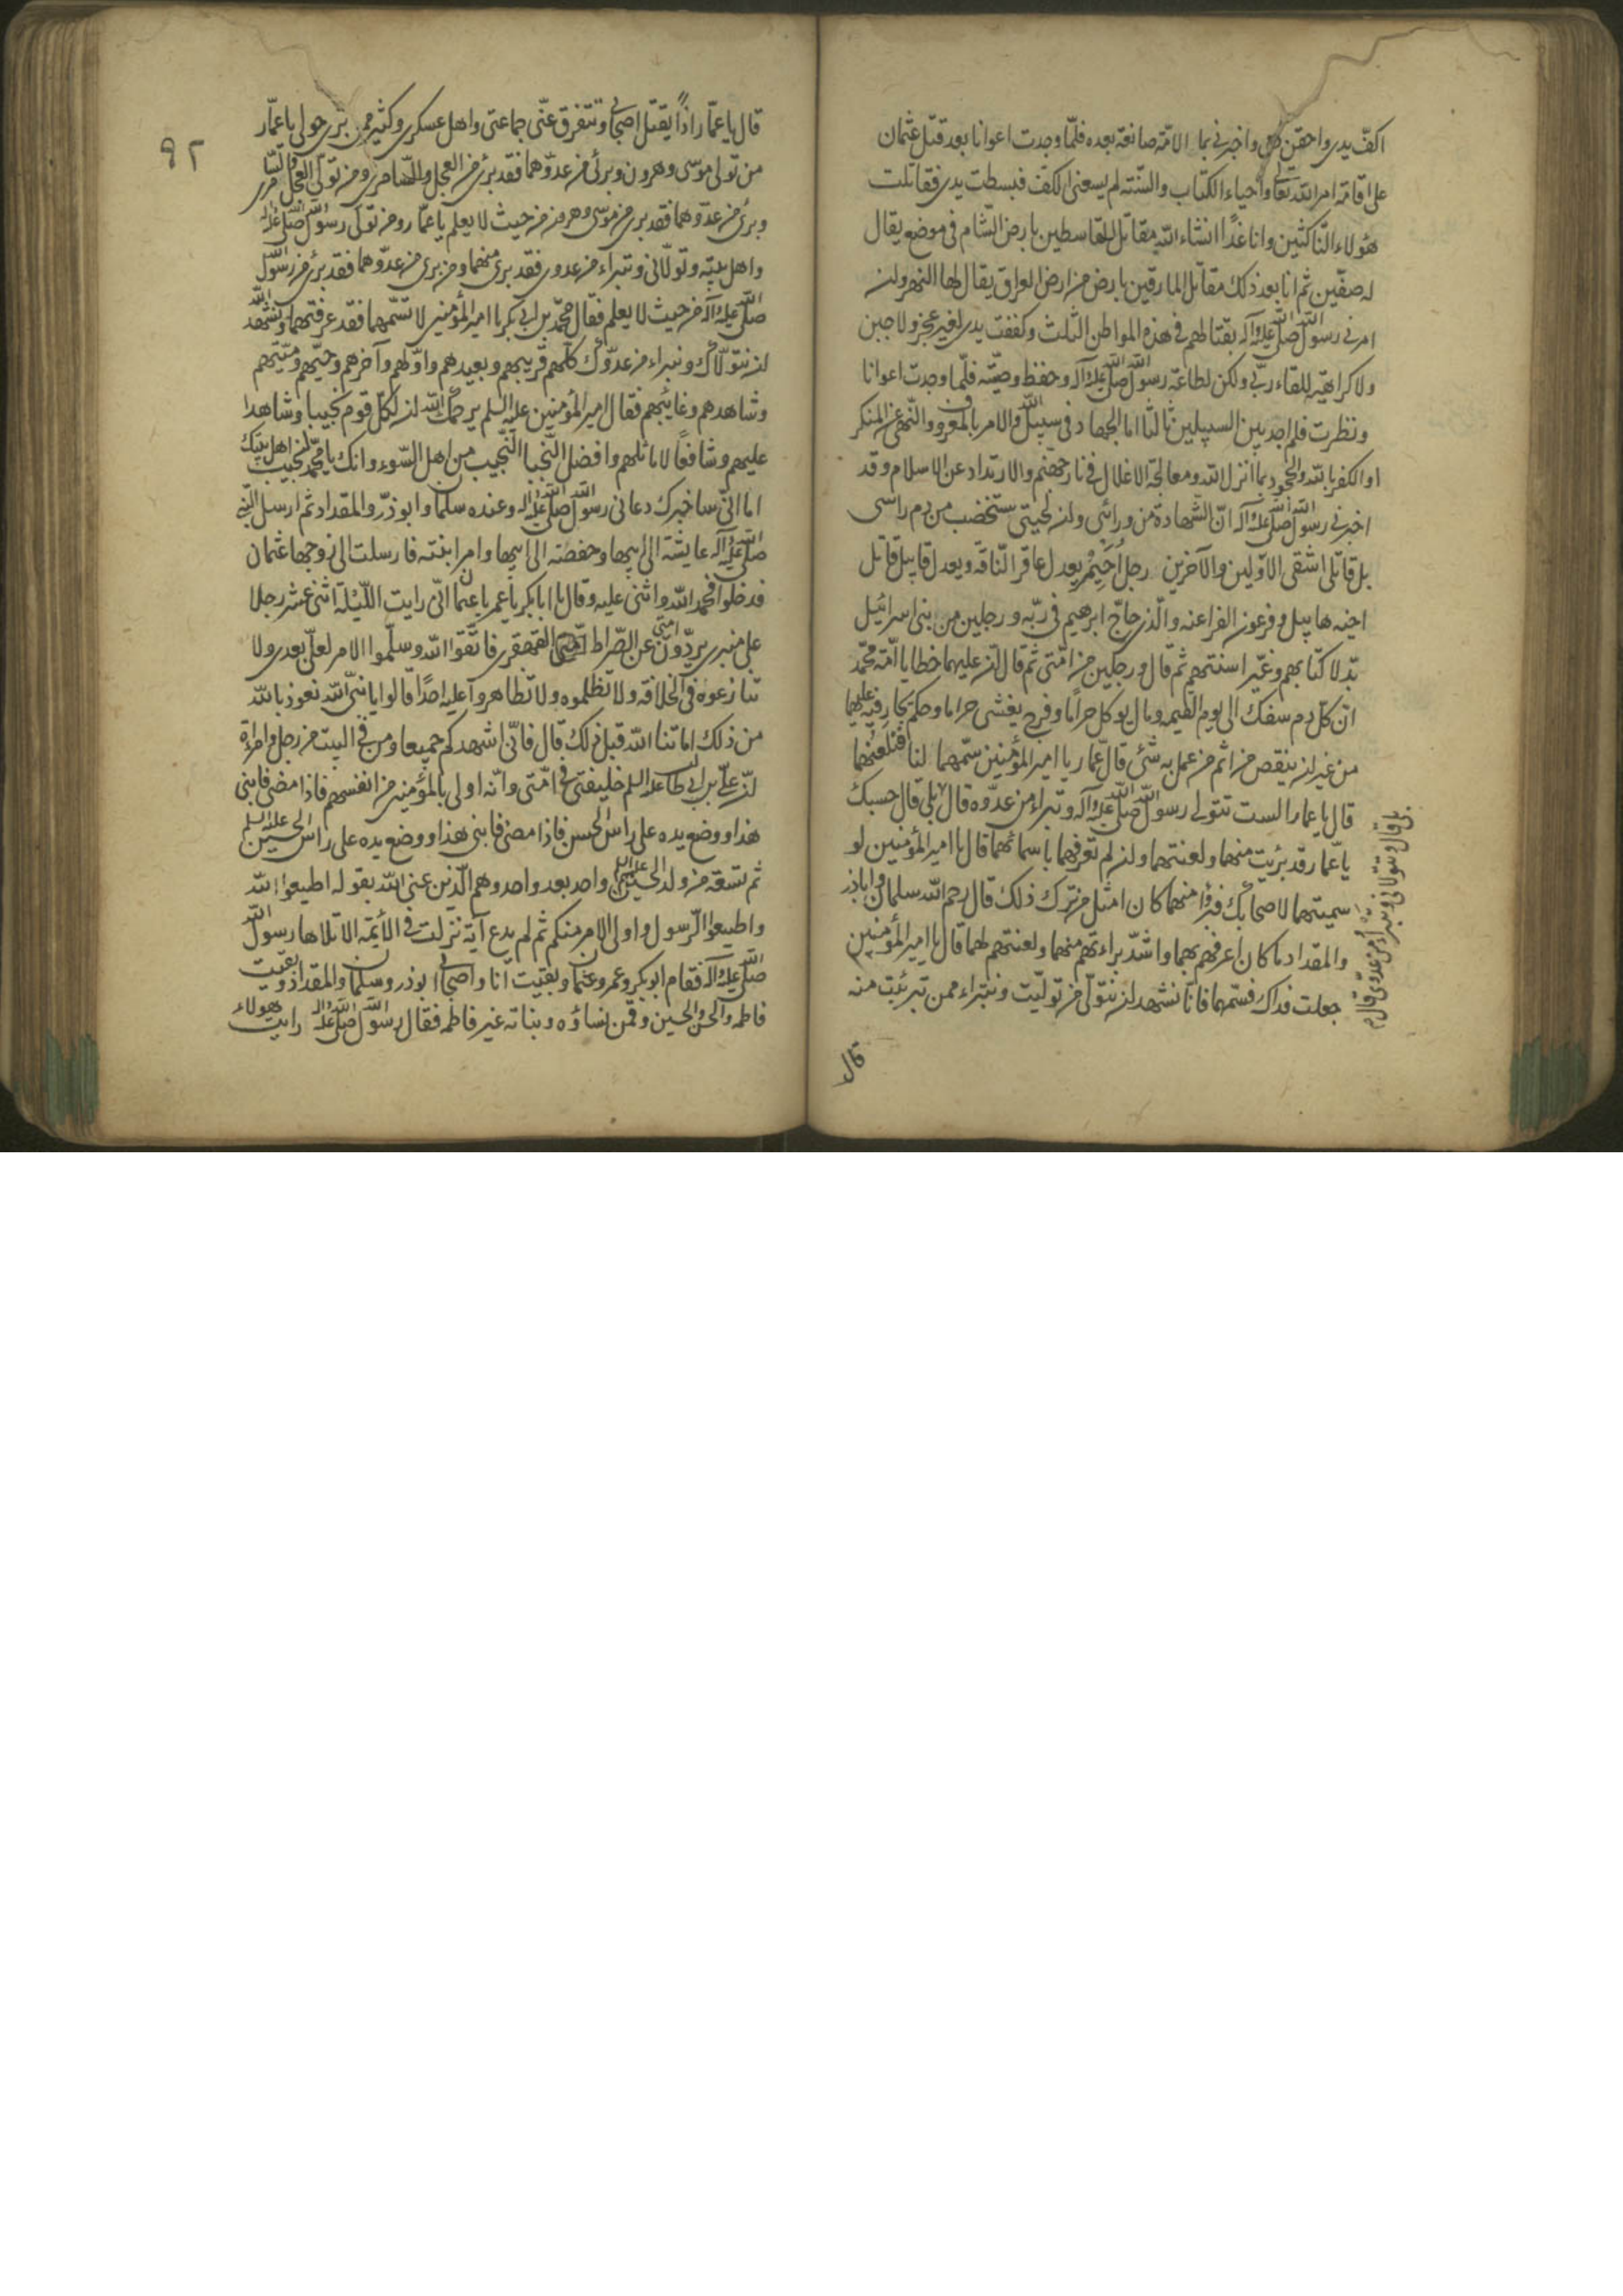 اكفّ يدى واحقن دمى واخبرنى بما الامّة صانعة بعده فلمّا وجدت اعوانا بعد قتل عثمان
على اقامة امر الله تعالى واحياء الكتاب والسّنّته لم يسعنى الكفّ فبسطت يدى فقاتلت
هؤلاء النّاكثين وانا غدًا انشاء الله مقاتل القاسطين بارض الشّام فى موضع يقال
له صفّين ثم انا بعد ذلك مقاتل المارقين بارض من ارض العراق يقال لها النهروان
امرنى رسول الله صلى الله عليه وآله بقتالهم فى هذه المواطن الثلث وكففت يدى لغير عجز ولا جبن
ولا كراهيّة للقاء ربّى ولكن لطاعة رسول الله صلى الله عليه وآله وحفظ وصيّته فلمّا وجدت اعوانا
ونظرت فلم اجد بين السبيلين ثالثًا اما الجهاد فى سبيل الله والامر بالمعروف والنّهى عن المنكر
او الكفر بالله والجحود بما انزل الله ومعالجة الاغلال فى نار جهنّم والارتداد عن الاسلام وقد
اخبرنى رسول الله صلى الله عليه وآله انّ الشهادة من ورائى وان لحيتى ستخضب من دم راسى
بل قاتلى اشقى الاوّلين والآخرين رجل اُحَيْمِرْ يعدل عاقر النّاقة ويعدل قابيل قاتل
اخيه هابيل وفرعون الفراعنه والّذى حاجّ ابرهيم فى ربّه ورجلين من بنى اسرائيل
بدّلا كتابهم وغيّرا سنتهم ثم قال ورجلين من امّتى ثم قال ان عليهما خطايا امّة محمّد
انّ كلّ دم سفك الى يوم القيمه ومال يوكل حرامًا وفرج يغشى حراما وحكم يجار فيه عليهما
من غير ان ينقص من اثم من عمل به شئ قال عمّار يا امير المؤمنين سمّهما لنا فنلعنهما
قال يا عمار الست تتولى رسول الله صلى الله عليه وآله وتبراء من عدّوه قال بلى قال حسبك
يا عمّار قد برئت منهما ولعنتهما وان لم تعرفهما باسمائهما قال يا امير المؤمنين لو
سميتهما لاصحابك فبرؤا منهما كان امثل من ترك ذلك قال رحم الله سلمان واباذر
والمقداد ما كان اعرفهم بهما واشدّ براءتهم منهما ولعنتهم لهما قال يا امير المؤمنين
جعلت فداك فسّمهما فانّا نشهد ان نتوّلى من توليّت ونتبراء ممن تبرئت منه
قال وتتولانى وتبراء من عدوّى قال
قال
٩٢
قال يا عمّار اذًا يقتل اصحابى وتتفرق عنّى جماعتى واهل عسكرى وكثير ممن ترى حولى يا عمّار
من تولى موسى وهرون وبرئ من عدوّهما فقد برئ من العجل والسّامرى ومن تولّى العجل والسّامرى
وبرئ من عدوّهما فقد برى من موسى وهرون من حيث لا يعلم يا عمّار ومن تولّى رسول الله صلى الله عليه وآله
واهل بيته وتولّانى وتبراء من عدوى فقد برئ منهما ومن برى من عدوّهما فقد برئ من رسول الله
صلى الله عليه وآله من حيث لا يعلم فقال محمّد بن ابى بكر يا امير المؤمنين لا تسّمهما فقد عرفتهما ونشهد الله
ان نتوّلاك ونبراء من عدوّك كلّهم قريبهم وبعيدهم واوّلهم وآخرهم وحيّهم وميّتهم
وشاهدهم وغائبهم فقال امير المؤمنين عليه السلم يرحمك الله ان لكلّ قوم نجيبا وشاهدا
عليهم وشافعًا لاماثلهم وافضل النّجبا النّجيب من اهل السّوء وانك يا محمّد نجيب اهل بيتك
اما انّى ساخبرك دعانى رسول الله صلى الله عليه وآله وعنده سلمان وابوذرّ والمقداد ثم ارسل النّبى
صلى الله عليه وآله عايشة الى ابيها وحفصة الى ابيها وامر ابنته فارسلت الى زوجها عثمان
فدخلوا فحمد الله واثنى عليه وقال يا ابابكر يا عمر يا عثمان انّى رايت اللّيلة اثنى عشر رجلا
على منبرى يردّون امتى عن الصّراط القهقرى فاتّقوا الله وسلّموا الامر لعلىّ بعدى ولا
تنازعوه فى الخلافة ولا تظلموه ولا تظاهروا عليه احدًا قالوا يا نبىّ الله نعوذ بالله
من ذلك اماتنا الله قبل ذلك قال فانّى اشهدكم جميعا ومن فى البيت من رجل وامراة
ان علىّ بن ابى طالب عليه السلم خليفتى فى امّتى وانّه اولى بالمؤمنين من انفسهم فاذا مضى فابنى
هذا ووضع يده على راس الحسن فاذا مضى فابنى هذا ووضع يده على راس الحسين عليه السلم
ثم تسعة من ولد الحسين عليه السلم واحد بعد واحد وهم الّذين عنى الله بقوله اطيعوا الله
واطيعوا الرّسول واولى الامر منكم ثم لم يدع آية نزلت فى الائمّة الا تلاها رسول الله
صلى الله عليه وآله فقام ابوبكر وعمر وعثمان وبقيت انا واصحابى ابوذر وسلمان والمقداد وبقيت
فاطمه والحسن والحسين وقمن نساؤه وبناته غير فاطمه فقال رسول الله صلى الله عليه وآله رايت هؤلاء